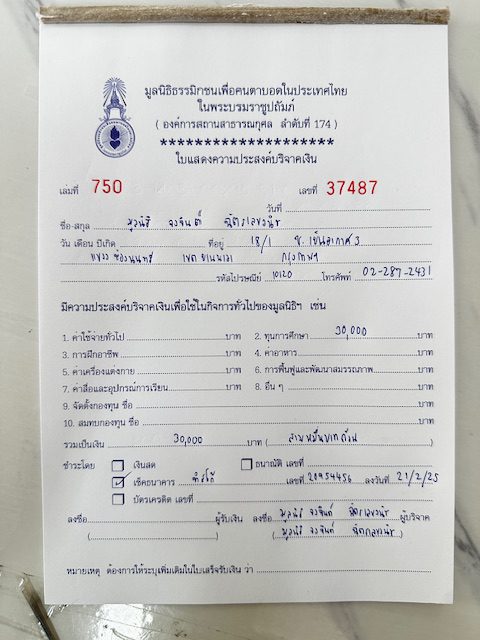 มูลนิธิธรรมิกชนเพื่อคนตาบอดในประเทศไทย
ในพระบรมราชูปถัมภ์
( องค์การสถานสาธารณกุศล ลำดับที่ 174 )
********************
ใบแสดงความประสงค์บริจาคเงิน
เล่มที่ 750 เลขที่ 37487
วันที่
ชื่อ-สกุล มูลนิธิ จงจินต์
วัน เดือน ปีเกิด ที่อยู่ 18/1 ซ. เย็นอากาศ
แขวง ช่องนนทรี เขต ยานนาวา กรุงเทพฯ
รหัสไปรษณีย์ 10120 โทรศัพท์ 02-287-2431
มีความประสงค์บริจาคเงินเพื่อใช้ในกิจการทั่วไปของมูลนิธิฯ เช่น
1. ค่าใช้จ่ายทั่วไป บาท 2. ทุนการศึกษา 30,000 บาท
3. การฝึกอาชีพ บาท 4. ค่าอาหาร บาท
5. ค่าเครื่องแต่งกาย บาท 6. การฟื้นฟูและพัฒนาสมรรถภาพ บาท
7. ค่าสื่อและอุปกรณ์การเรียน บาท 8. อื่น ๆ บาท
9. จัดตั้งกองทุน ชื่อ
10. สมทบกองทุน ชื่อ
รวมเป็นเงิน 30,000 บาท ( สามหมื่นบาทถ้วน )
ชำระโดย เงินสด ธนาณัติ เลขที่
เช็คธนาคาร ทิสโก้ เลขที่ 20954456 ลงวันที่ 21/2/25
บัตรเครดิต เลขที่
ลงชื่อ ผู้รับเงิน ลงชื่อ มูลนิธิ จงจินต์ ผู้บริจาค
( ) ( มูลนิธิ จงจินต์ )
หมายเหตุ ต้องการให้ระบุเพิ่มเติมในใบเสร็จรับเงิน ว่า